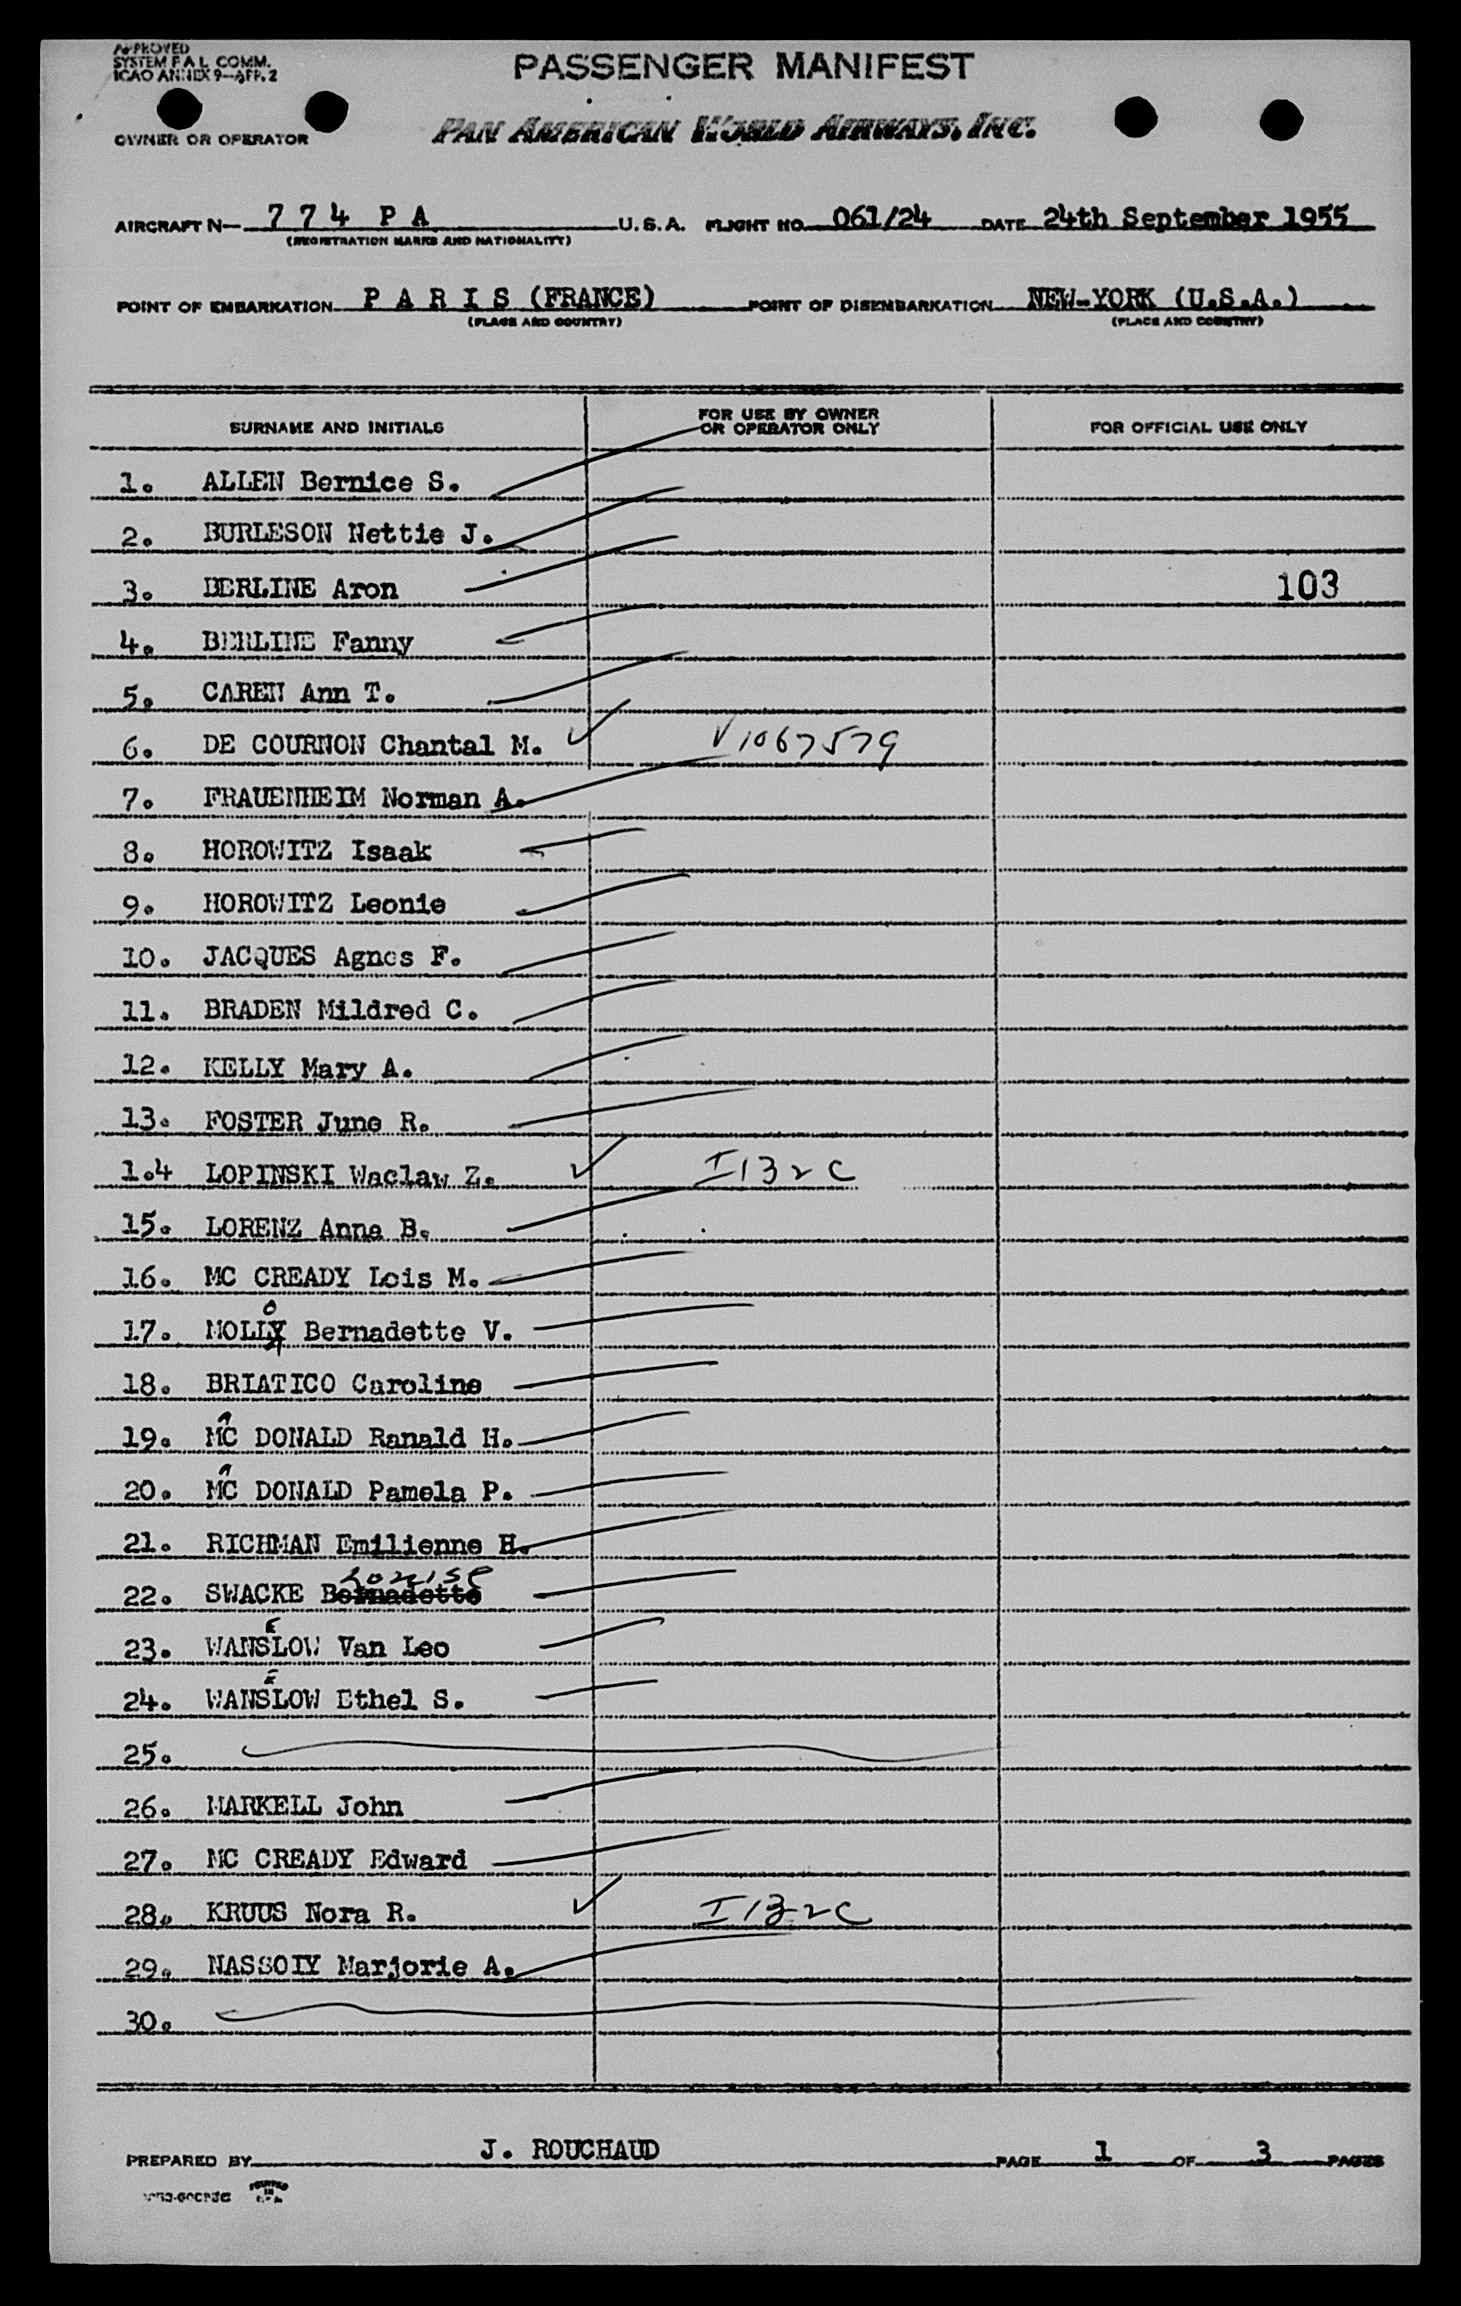 APPROVED
SYSTEM F A L COMM.
ICAO ANNEX 9-APP. 2
PASSENGER MANIFEST
OWNER OR OPERATOR PAN AMERICAN WORLD AIRWAYS, INC.
AIRCRAFT N- 7 7 4 P A U.S.A. FLIGHT NO. 061/24 DATE 24th September 1955
(REGISTRATION MARKS AND NATIONALITY)
POINT OF EMBARKATION P A R I S (FRANCE) POINT OF DISEMBARKATION NEW-YORK (U.S.A.)
(PLACE AND COUNTRY) (PLACE AND COUNTRY)
SURNAME AND INITIALS FOR USE BY OWNER OR OPERATOR ONLY FOR OFFICIAL USE ONLY
1. ALLEN Bernice S.
2. BURLESON Nettie J.
3. BERLINE Aron 103
4. BERLINE Fanny
5. CAREN Ann T.
6. DE COURNON Chantal M. V1067579
7. FRAUENHEIM Norman A.
8. HOROWITZ Isaak
9. HOROWITZ Leonie
10. JACQUES Agnes F.
11. BRADEN Mildred C.
12. KELLY Mary A.
13. FOSTER June R.
1.4 LOPINSKI Waclaw Z. I132C
15. LORENZ Anna B.
16. MC CREADY Lois M.
O
17. MOLLY Bernadette V.
18. BRIATICO Caroline
19. MC DONALD Ranald H.
20. MC DONALD Pamela P.
21. RICHMAN Emilienne H.
Louise
22. SWACKE Bernadette
E
23. WANSLOW Van Leo
E
24. WANSLOW Ethel S.
25.
26. MARKELL John
27. MC CREADY Edward
28. KRUUS Nora R. I132C
29. NASSOIY Marjorie A.
30.
PREPARED BY J. ROUCHAUD PAGE 1 OF 3 PAGES
PRINTED
IN